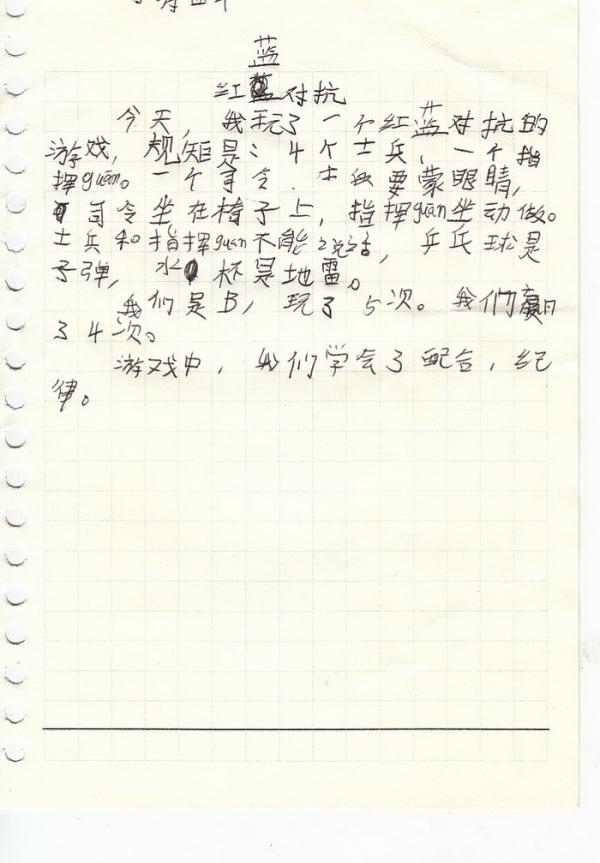 蓝
红蓝对抗
今天，我玩了一个红蓝对抗的
游戏，规矩是：4个士兵，一个指
挥guān。一个司令．士兵要蒙眼睛，
司令坐在椅子上，指挥guān坐动做。
士兵和指挥guān不能说话，乒乓球是
子弹，水杯是地雷。
我们是B，玩了5次。我们赢
了4次。
游戏中，我们学会了配合，纪
律。